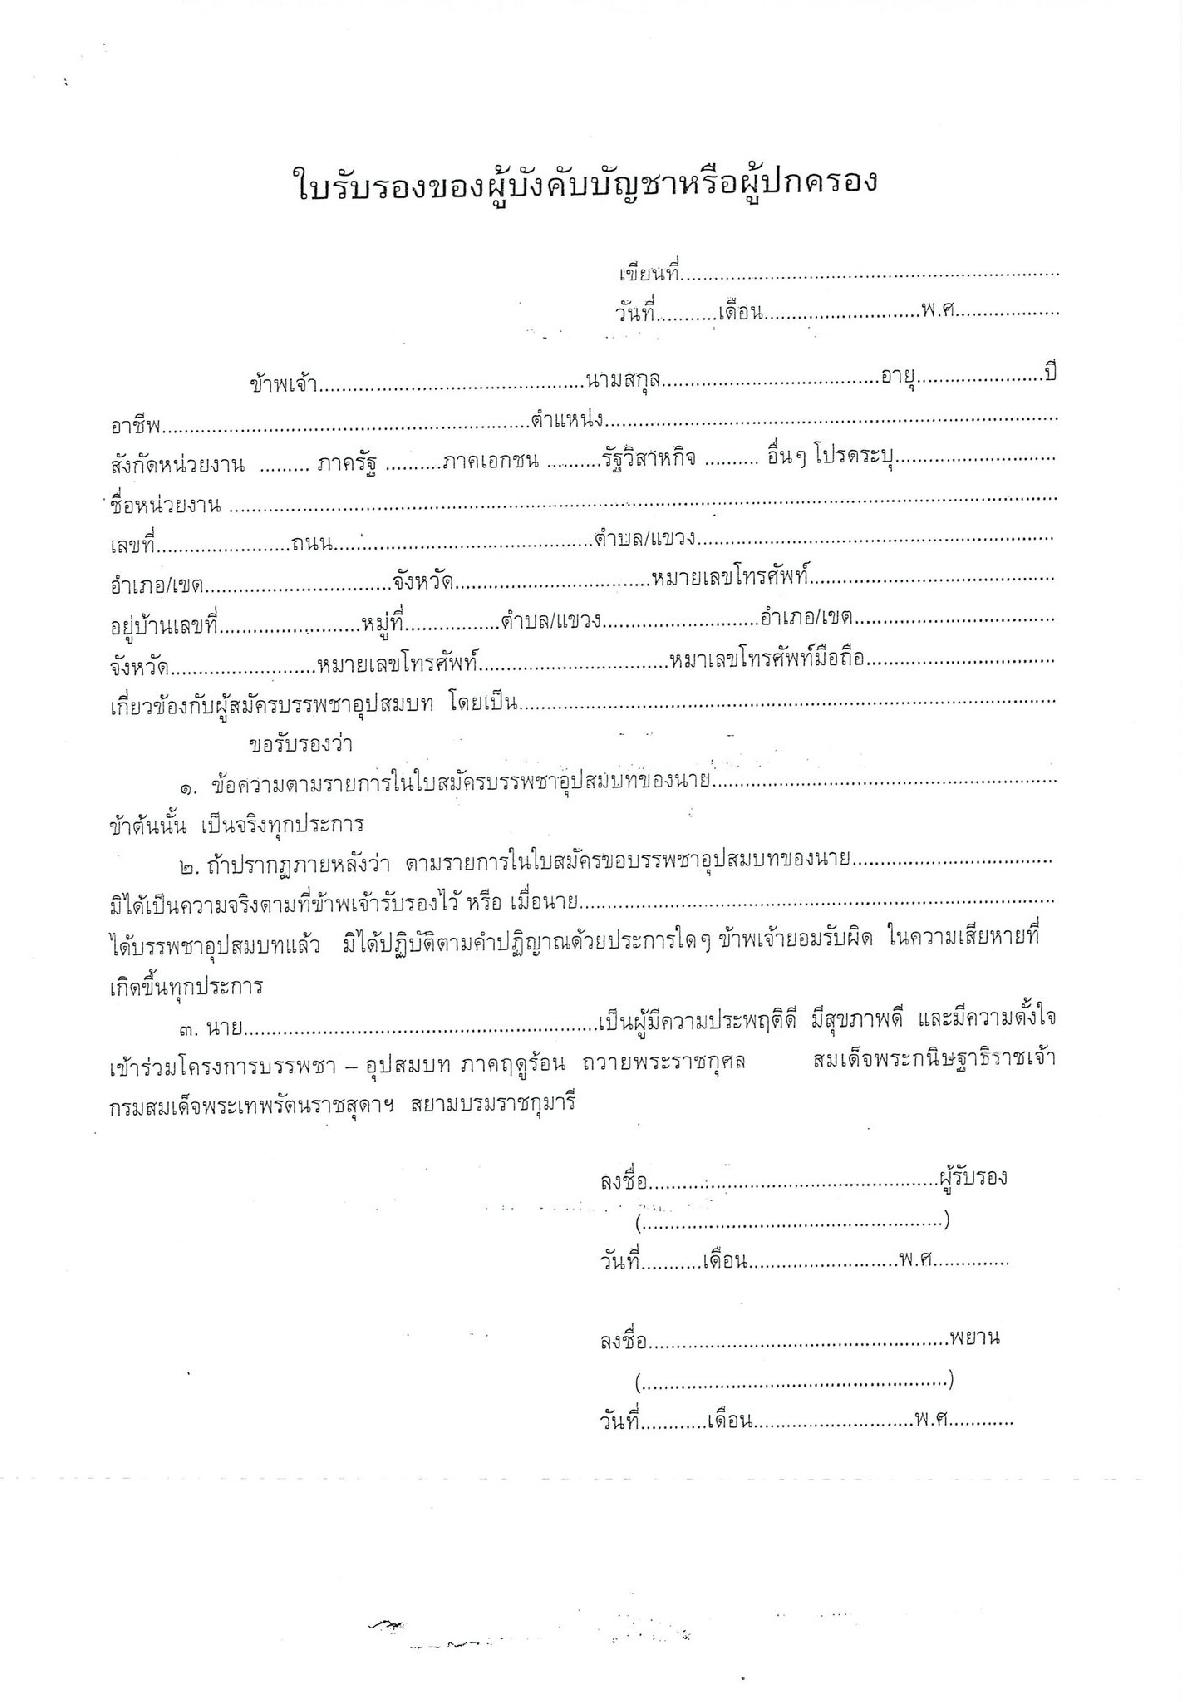 ใบรับรองของผู้บังคับบัญชาหรือผู้ปกครอง
เขียนที่....................................................................
วันที่...........เดือน............................พ.ศ...................
ข้าพเจ้า................................................นามสกุล.......................................อายุ.......................ปี
อาชีพ...................................................................ตำแหน่ง..................................................................................
สังกัดหน่วยงาน ......... ภาครัฐ ..........ภาคเอกชน ..........รัฐวิสาหกิจ .......... อื่นๆ โปรดระบุ.............................
ชื่อหน่วยงาน ......................................................................................................................................................
เลขที่........................ถนน...............................................ตำบล/แขวง................................................................
อำเภอ/เขต..................................จังหวัด...................................หมายเลขโทรศัพท์............................................
อยู่บ้านเลขที่..........................หมู่ที่.................ตำบล/แขวง............................อำเภอ/เขต....................................
จังหวัด..........................หมายเลขโทรศัพท์..................................หมาเลขโทรศัพท์มือถือ..................................
เกี่ยวข้องกับผู้สมัครบรรพชาอุปสมบท โดยเป็น.................................................................................................
ขอรับรองว่า
๑. ข้อความตามรายการในใบสมัครบรรพชาอุปสมบทของนาย..............................................................
ข้าต้นนั้น เป็นจริงทุกประการ
๒. ถ้าปรากฏภายหลังว่า ตามรายการในใบสมัครขอบรรพชาอุปสมบทของนาย....................................
มิได้เป็นความจริงตามที่ข้าพเจ้ารับรองไว้ หรือ เมื่อนาย.....................................................................................
ได้บรรพชาอุปสมบทแล้ว มิได้ปฏิบัติตามคำปฏิญาณด้วยประการใดๆ ข้าพเจ้ายอมรับผิด ในความเสียหายที่
เกิดขึ้นทุกประการ
๓. นาย................................................................เป็นผู้มีความประพฤติดี มีสุขภาพดี และมีความตั้งใจ
เข้าร่วมโครงการบรรพชา – อุปสมบท ภาคฤดูร้อน ถวายพระราชกุศล สมเด็จพระกนิษฐาธิราชเจ้า
กรมสมเด็จพระเทพรัตนราชสุดาฯ สยามบรมราชกุมารี
ลงชื่อ....................................................ผู้รับรอง
(......................................................)
วันที่...........เดือน...........................พ.ศ..............
ลงชื่อ......................................................พยาน
(.......................................................)
วันที่............เดือน.............................พ.ศ............